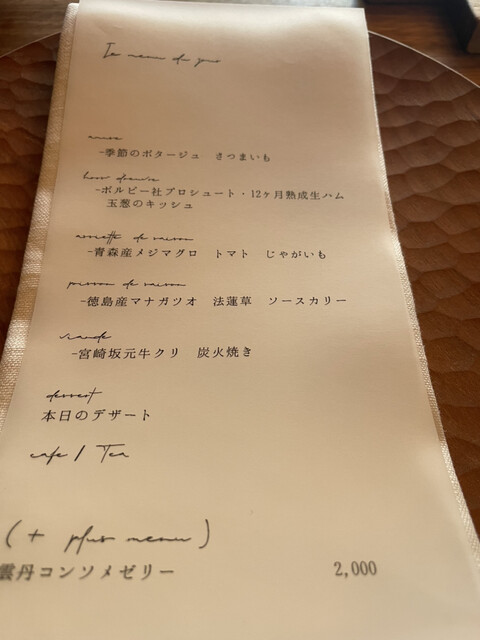 Le menu du jour
amuse
-季節のポタージュ　さつまいも
hors d'œuvre
-ボルピー社プロシュート・12ヶ月熟成生ハム
玉葱のキッシュ
assiette de saison
-青森産メジマグロ　トマト　じゃがいも
poisson de saison
-徳島産マナガツオ　法蓮草　ソースカリー
viande
-宮崎坂元牛クリ　炭火焼き
dessert
本日のデザート
cafe / Tea
(+ plus menu)
雲丹コンソメゼリー　2,000